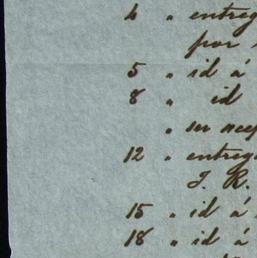 4 " entreg
por
5 " id á
8 " id
" su nece
12 " entrega
J. R.
15 " id á
18 " id á